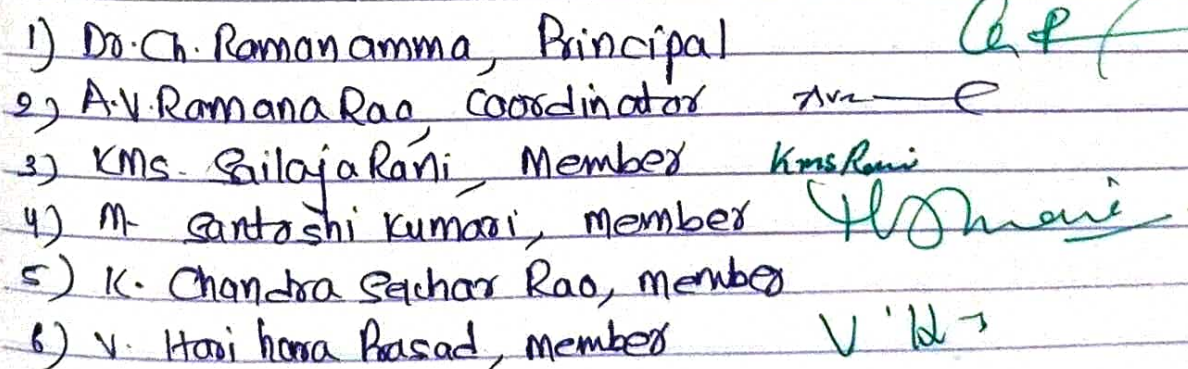 1) Dr. Ch. Ramanamma, Principal
2) A.V. Ramana Rao, Coordinator
3) KMS. Sailaja Rani, Member KmsRani
4) M. Santoshi Kumari, member
5) K. Chandra Sechar Rao, member
6) V. Hari hara Prasad, member